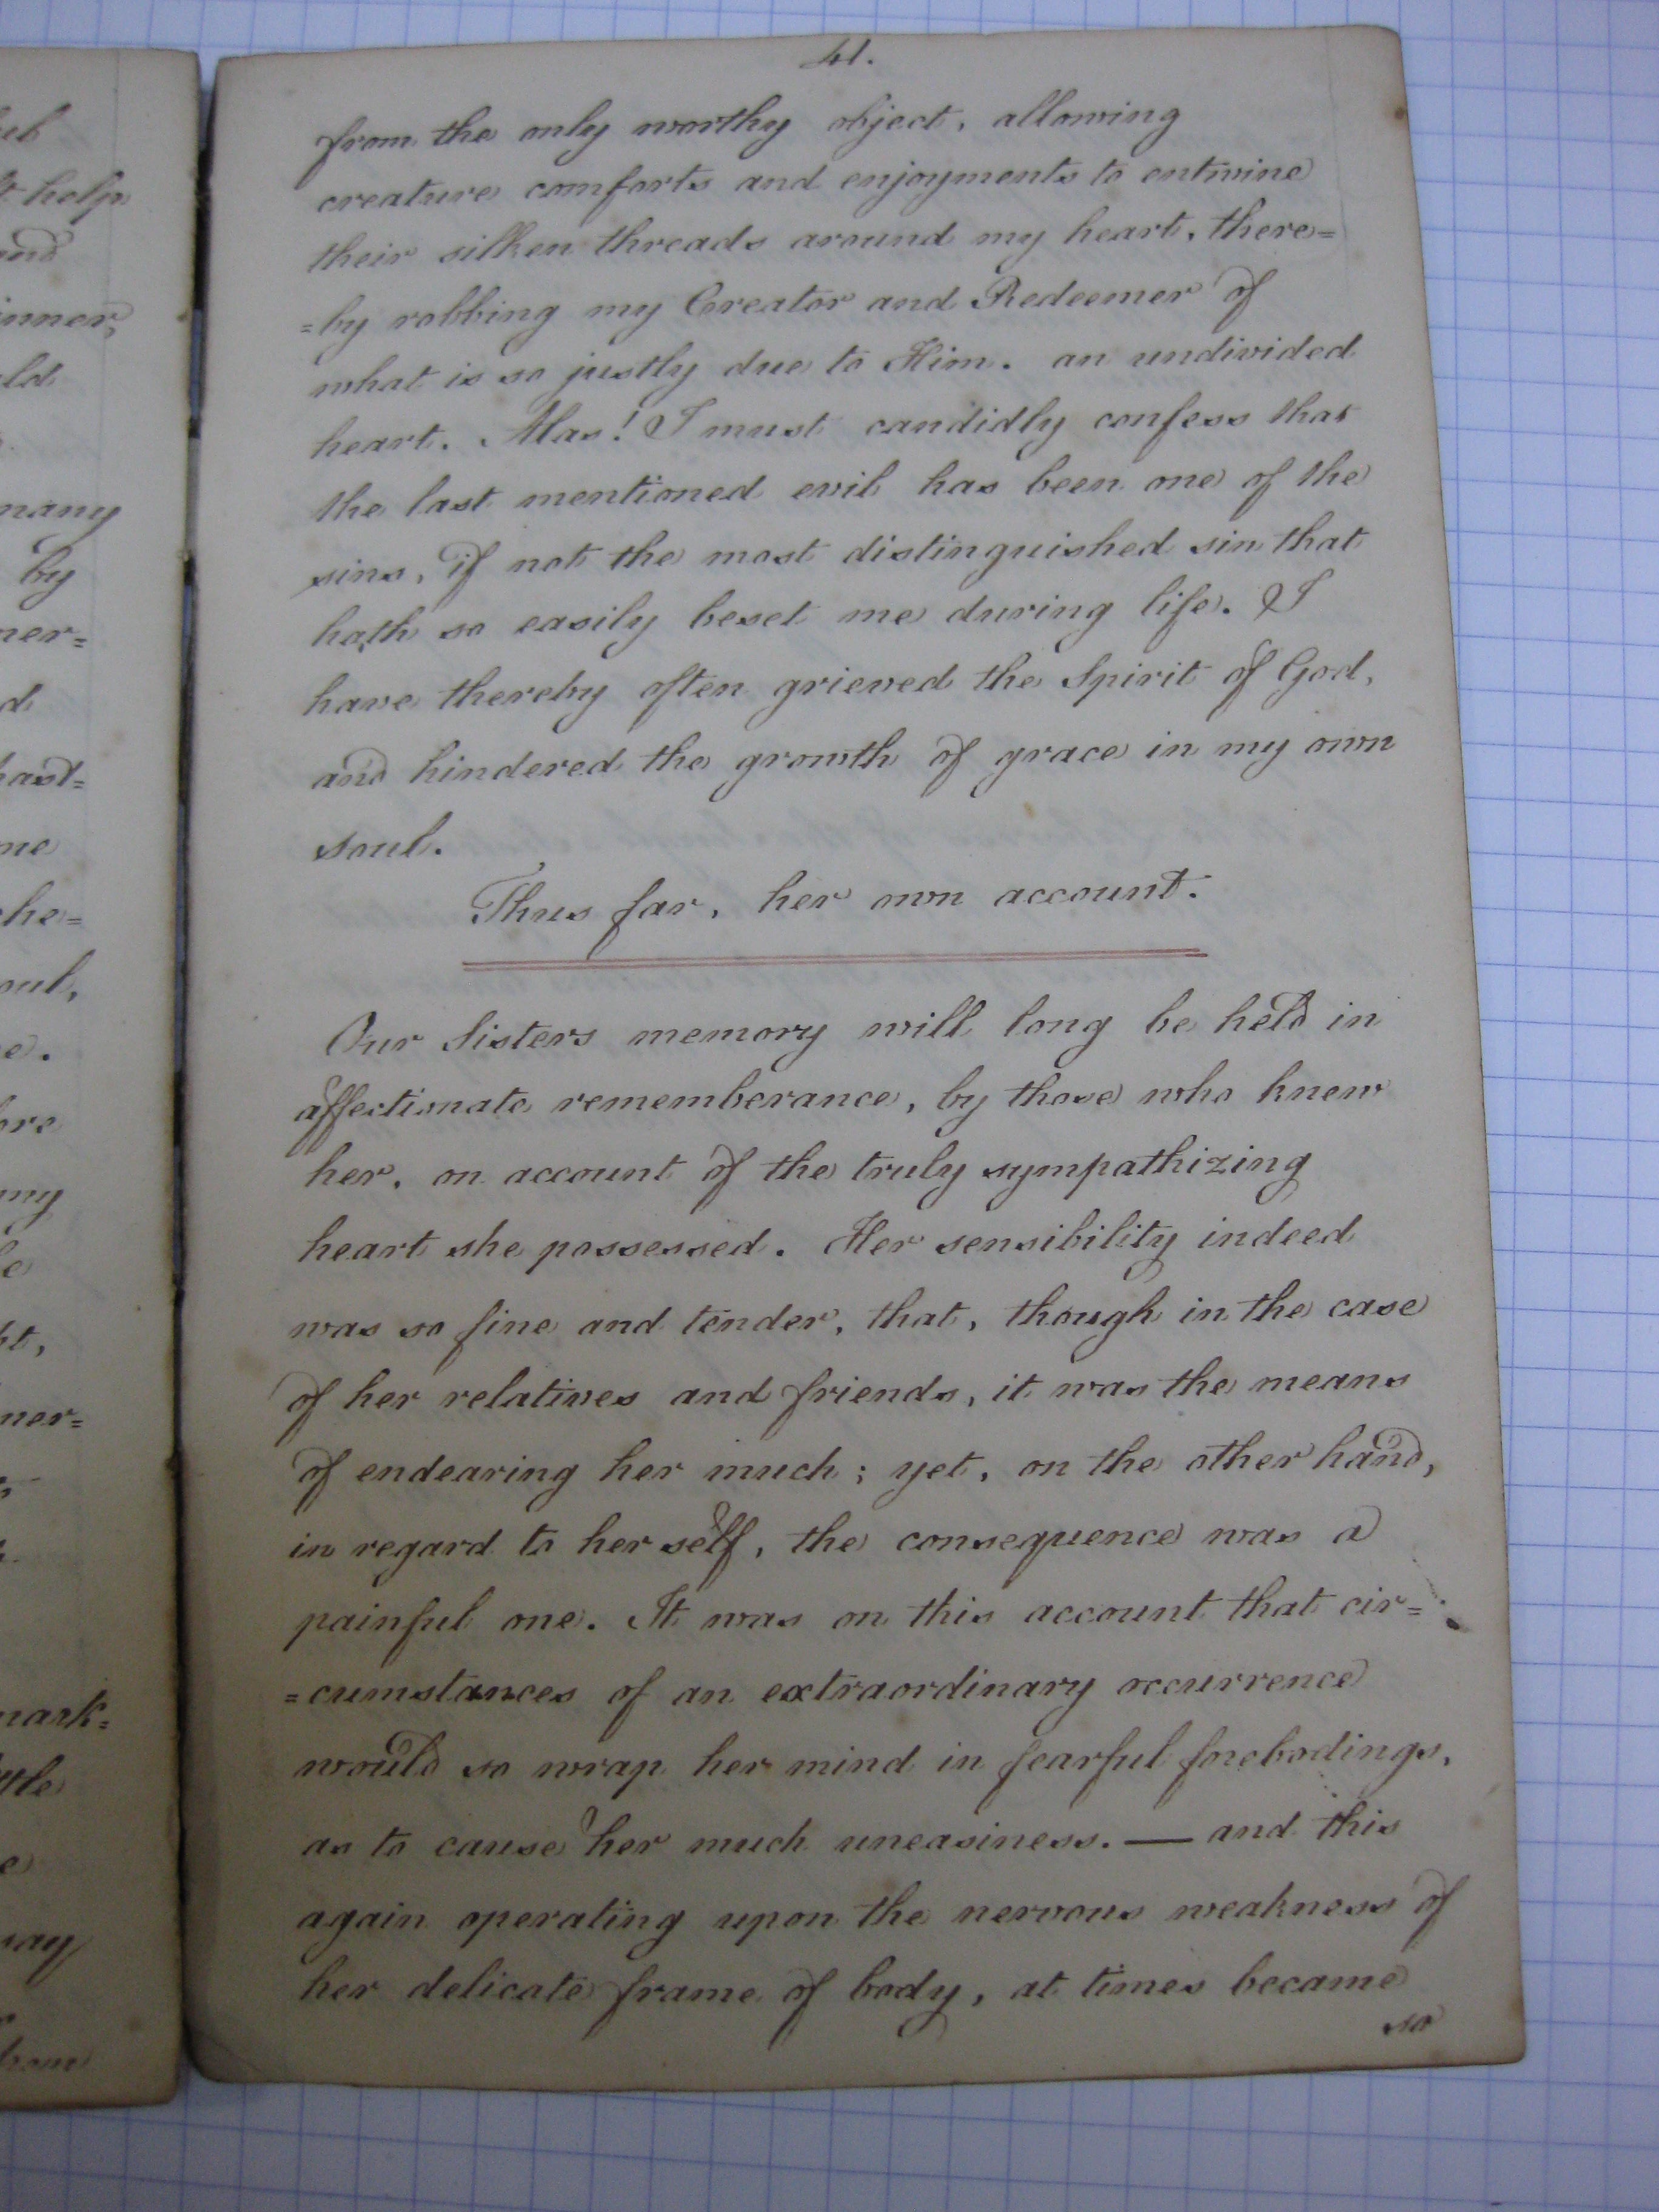 41.
from the only worthy object, allowing
creature comforts and enjoyments to entwine
their silken threads around my heart, there=
=by robbing my Creator and Redeemer of
what is so justly due to Him. an undivided
heart. Alas! I must candidly confess that
the last mentioned evil has been one of the
sins, if not the most distinguished sin that
hath so easily beset me during life. I
have thereby often grieved the Spirit of God,
and hindered the growth of grace in my own
soul.
Thus far, her own account.
Our Sisters memory will long be held in
affectionate rememberance, by those who knew
her, on account of the truly sympathizing
heart she possessed. Her sensibility indeed
was so fine and tender, that, though in the case
of her relatives and friends, it was the means
of endearing her much; yet, on the other hand,
in regard to her self, the consequence was a
painful one. It was on this account that cir=
=cumstances of an extraordinary occurrence
would so wrap her mind in fearful forebodings,
as to cause her much uneasiness. — and this
again operating upon the nervous weakness of
her delicate frame of body, at times became
so
help
and
inner,
many
by
ner=
d
hast=
me
che=
oul,
e.
my
ner=
mark=
ttle